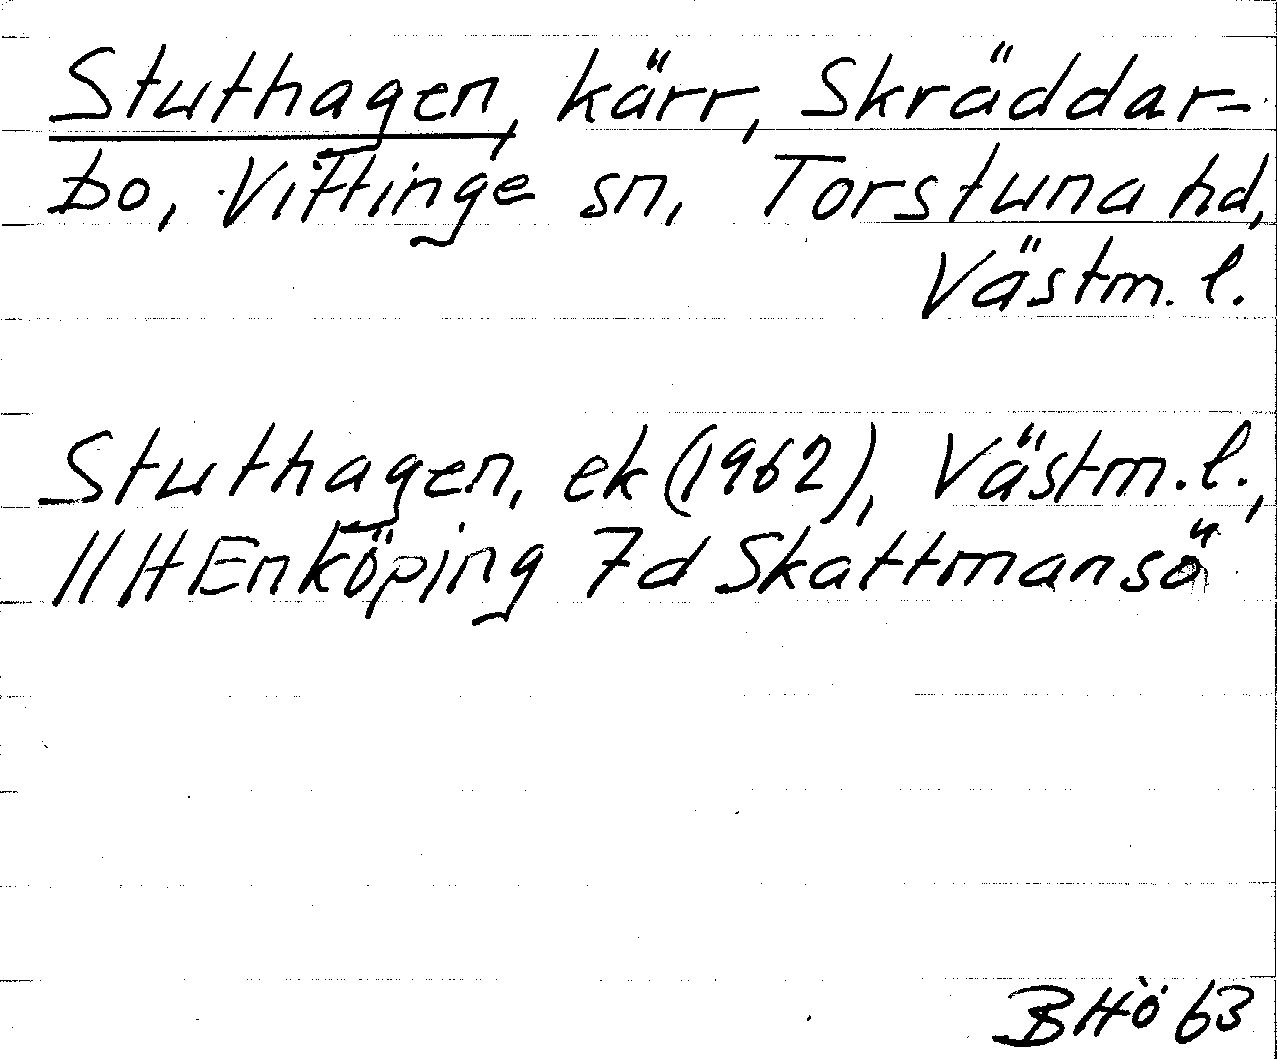 Stuthagen, kärr, Skräddar-
bo, Vittinge sn, Torstuna hd,
Västm. l.
Stuthagen, ek (1962), Västm. l.,
11 H Enköping 7d Skattmansö
BHö 63